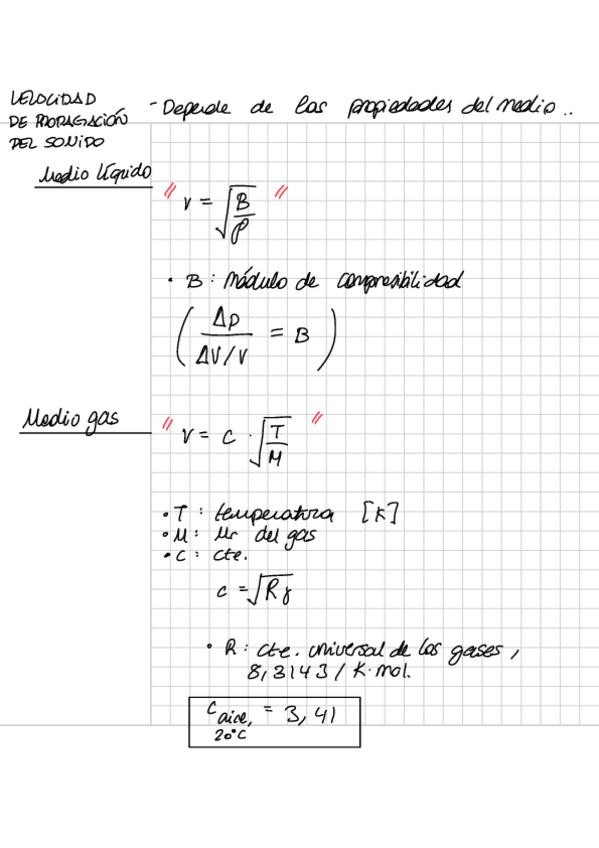 VELOCIDAD
DE PROPAGACIÓN
DEL SONIDO
- Depende de las propiedades del medio..
Medio líquido
" v = √(B/ρ) "
· B: módulo de compresibilidad
( Δp / (ΔV/V) = B )
Medio gas
" v = c · √(T/M) "
· T: temperatura [K]
· M: Mr del gas
· C: cte.
c = √(Rγ)
· R: cte. universal de los gases,
8,3143/K·mol.
C aire, = 3,41
20°C